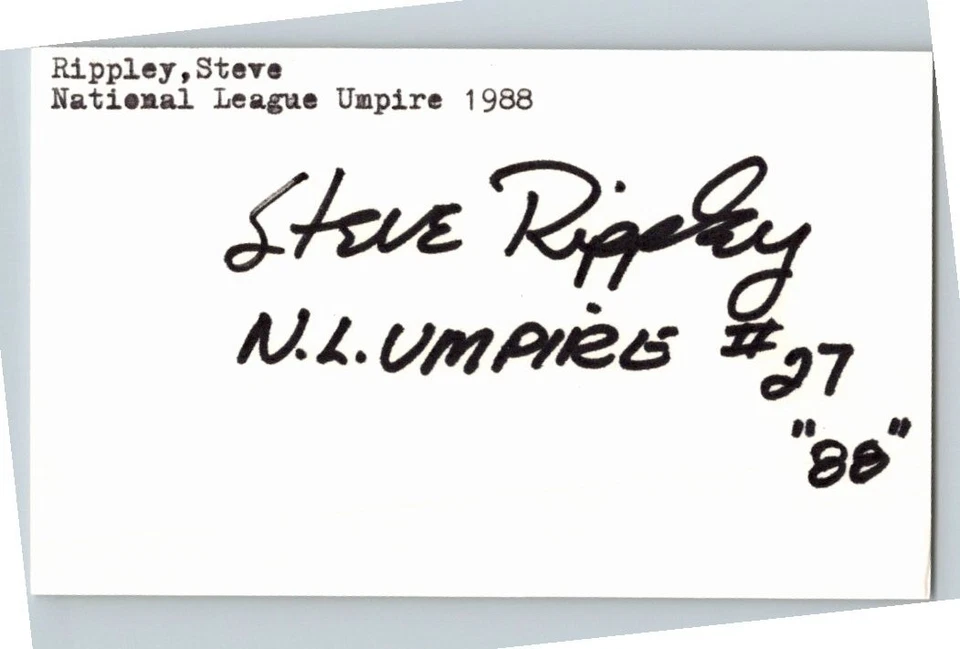 Rippley,Steve
National League Umpire 1988
Steve Rippley
N.L. UMPIRE #27
"88"